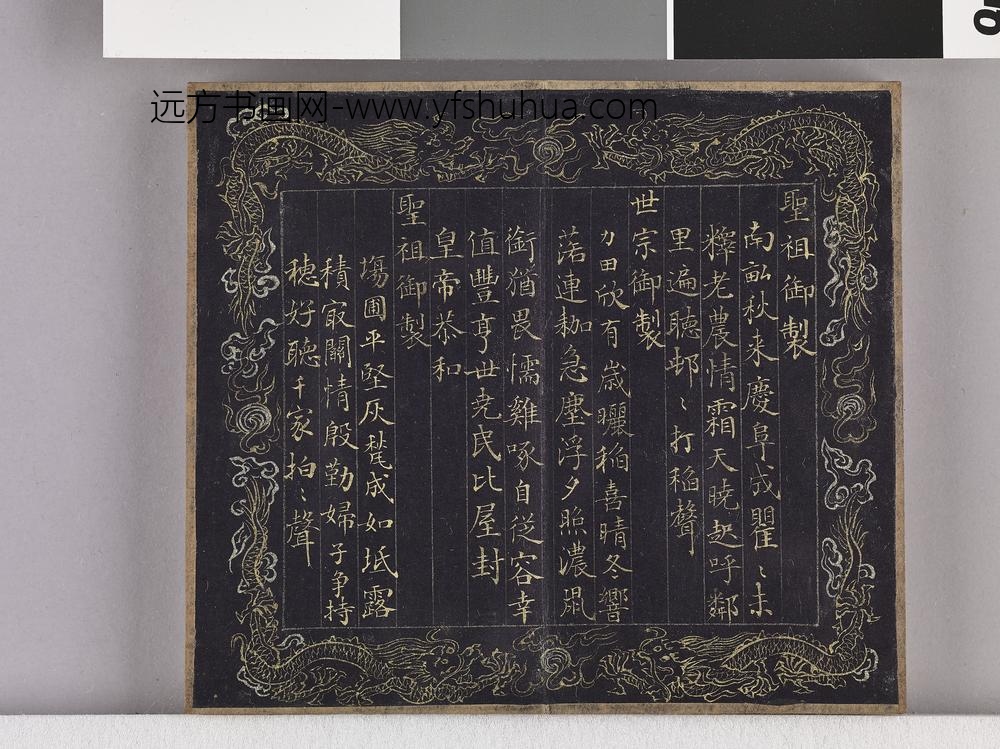 远方书画网-www.yfshuhua.com
聖祖御製
南畝秋來慶阜成瞿〻未
釋老農情霜天曉起呼鄰
里遍聽邨〻打稻聲
世宗御製
力田欣有歲曬稻喜晴冬響
落連耞急塵浮夕照濃鼠
銜猶畏懦雞啄自從容幸
值豐亨世堯民比屋封
皇帝恭和
聖祖御製
場圃平堅灰甃成如坻露
積冣關情殷勤婦子爭持
穗好聽千家拍〻聲